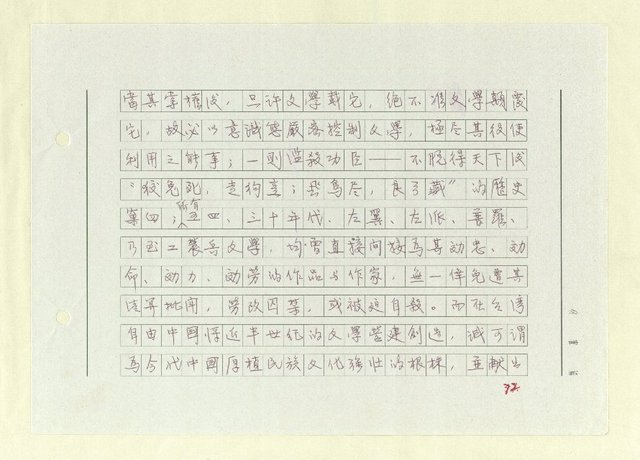 當其掌權後，只許文學載它，絕不准文學顛覆
它，故必以意識態嚴密控制文學，極盡其役使
利用之能事；一則濫殺功臣——不脫得天下後
“狡兔死，走狗烹；飛鳥尽，良弓藏”的歷史
窠臼；所有五四、三十年代、左翼、左派、普羅、
乃至工農兵文學，均曾直接間接為其効忠、効
命、効力、効勞的作品与作家，無一倖免遭其
清算批鬥，勞改囚禁，或被迫自殺。而在台湾
自由中國將近半世紀的文學營建創造，誠可謂
為今代中國厚植民族文化強壯的根株，並献出
32